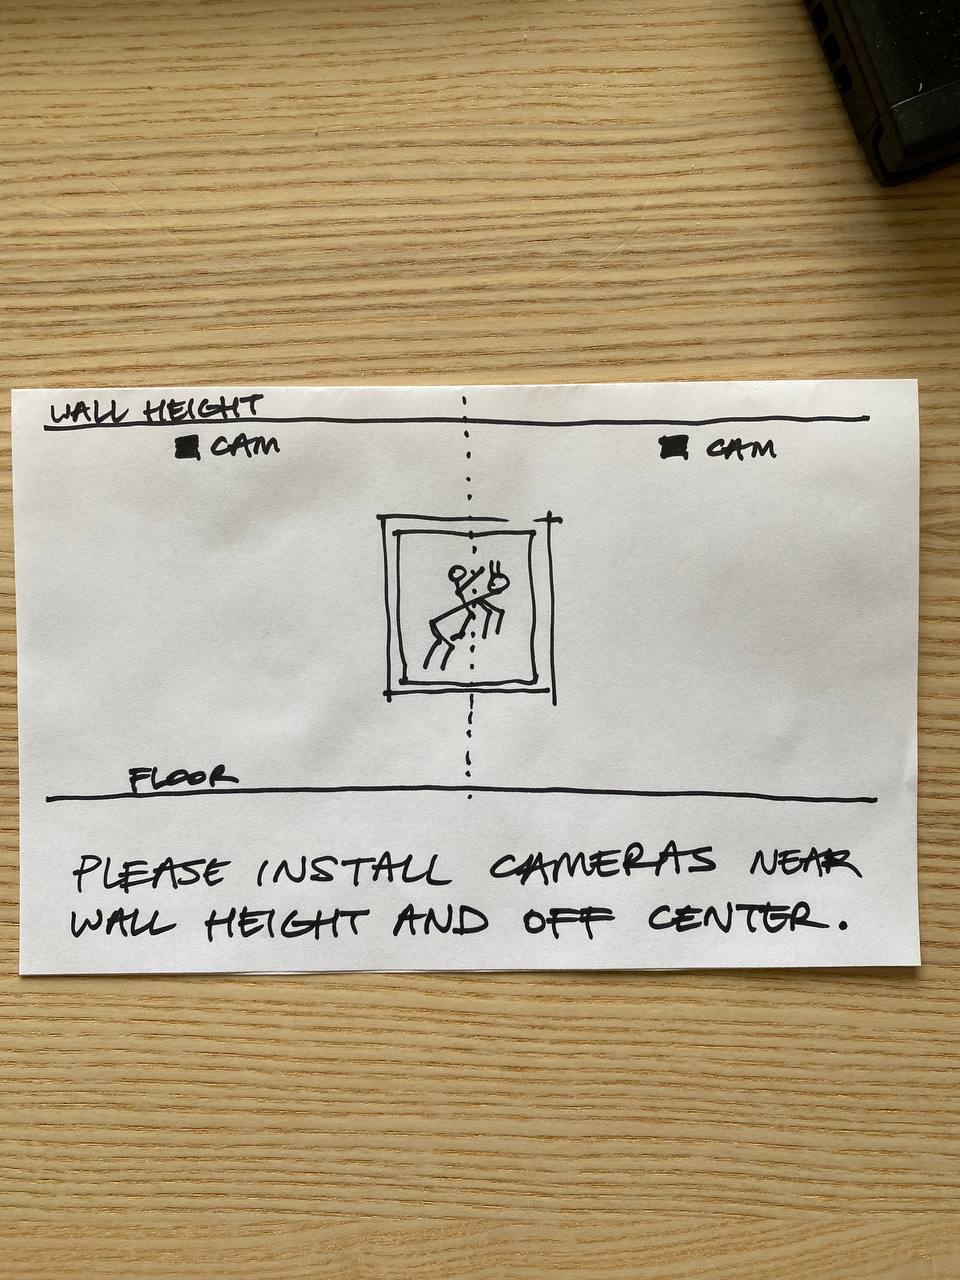 WALL HEIGHT
CAM CAM
FLOOR
PLEASE INSTALL CAMERAS NEAR
WALL HEIGHT AND OFF CENTER.